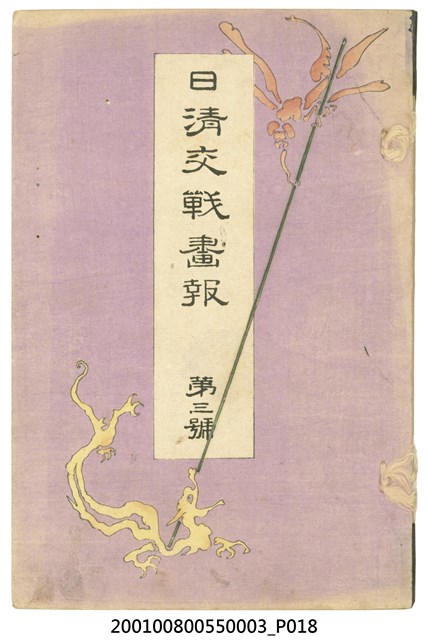 日清交戰畫報
第三號
200100800550003_P018